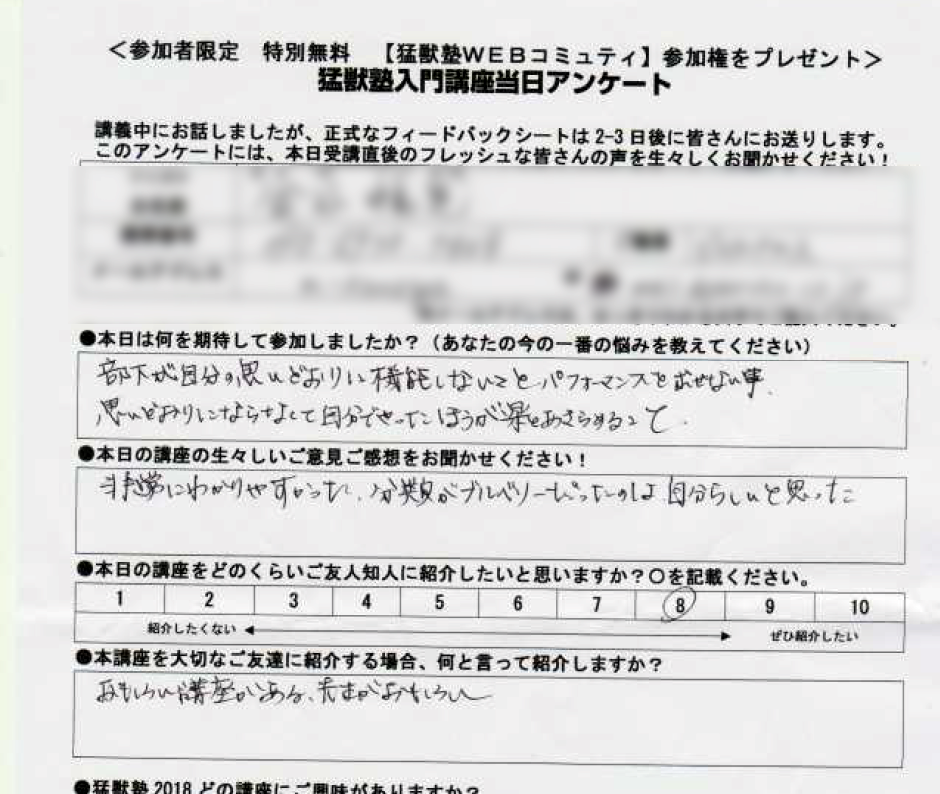 ＜参加者限定　特別無料　【猛獣塾ＷＥＢコミュティ】参加権をプレゼント＞
猛獣塾入門講座当日アンケート
講義中にお話しましたが、正式なフィードバックシートは2-3日後に皆さんにお送りします。
このアンケートには、本日受講直後のフレッシュな皆さんの声を生々しくお聞かせください！
メールアドレス
●本日は何を期待して参加しましたか？（あなたの今の一番の悩みを教えてください）
部下が自分の思いどおりに機能しないことパフォーマンスを出せない事、
思いどおりにならなくて自分でやったほうが楽とあきらめること
●本日の講座の生々しいご意見ご感想をお聞かせください！
非常にわかりやすかった、分類がブルベリーだったのは自分らしいと思った
●本日の講座をどのくらいご友人知人に紹介したいと思いますか？〇を記載ください。
1 2 3 4 5 6 7 8 9 10
紹介したくない ぜひ紹介したい
●本講座を大切なご友達に紹介する場合、何と言って紹介しますか？
おもしろい講座がある、先生がおもしろい
●猛獣塾2018どの講座にご興味がありますか？